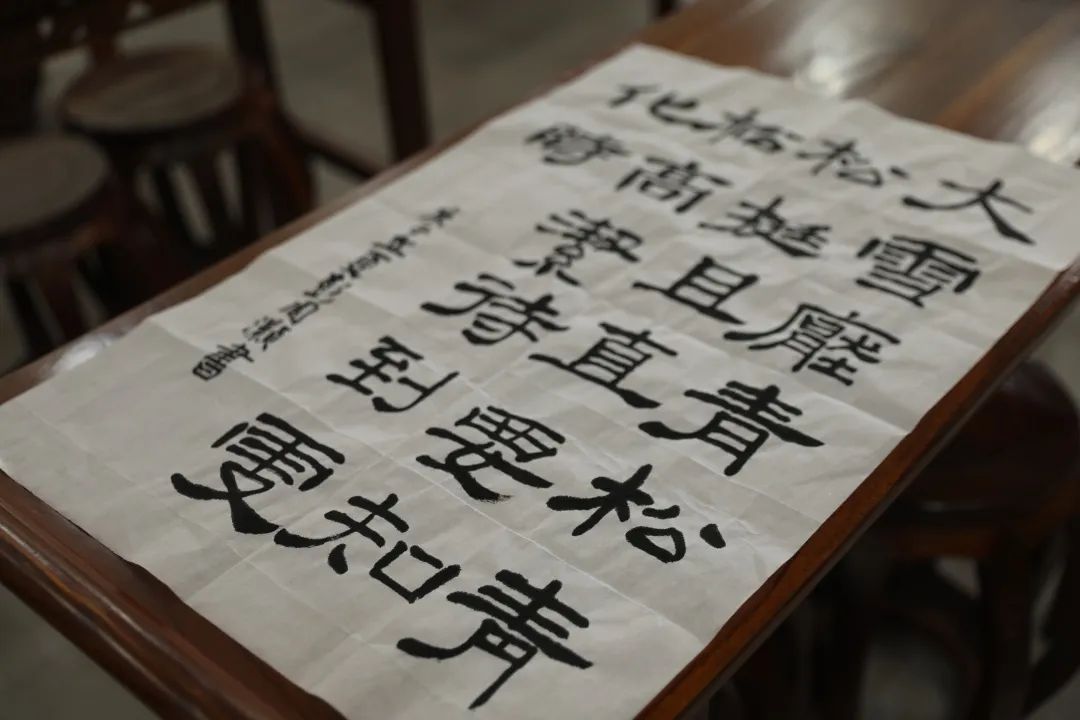 大雪壓青松青
松挺且直要知
松高潔待到雪
化時
書